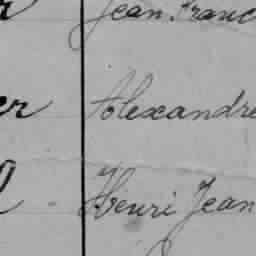 Jean Franc
er Alexandre
Henri Jean